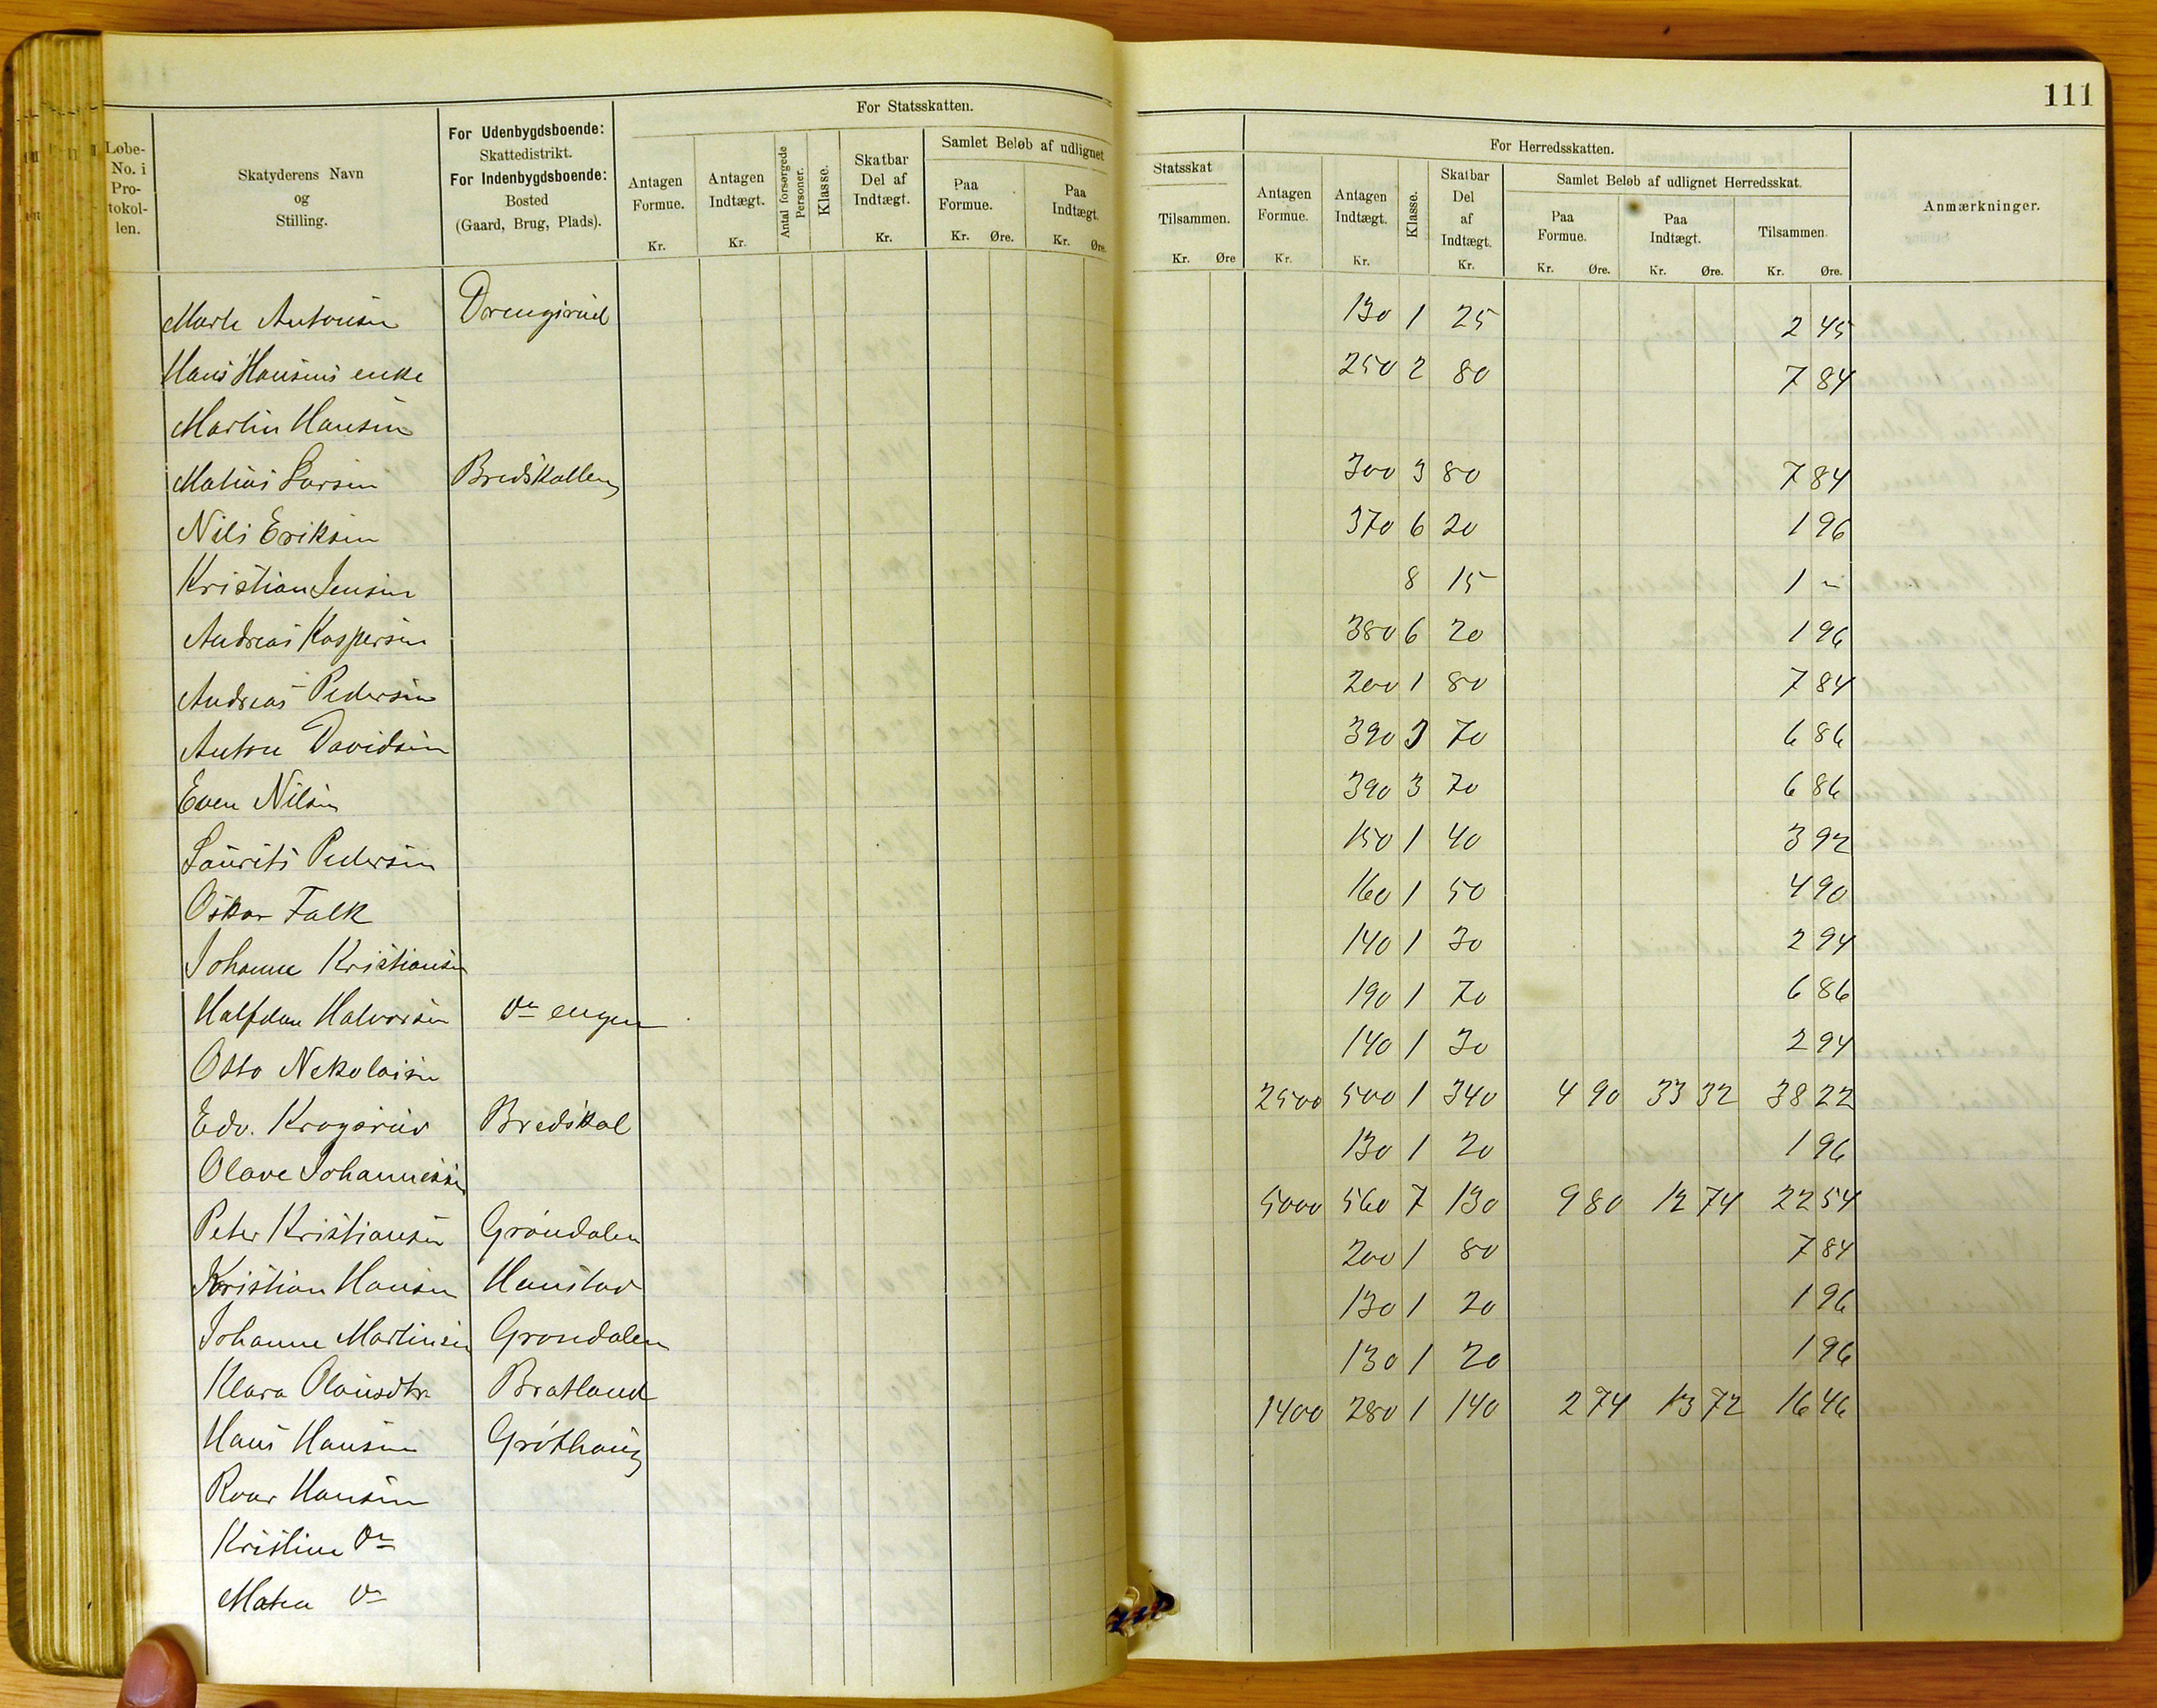 111
Løbe-No. i Protokollen.
Skatyderens Navn og Stilling.
For Udenbygdsboende: Skattedistrikt. For Indenbygdsboende: Bosted (Gaard, Brug, Plads).
For Statsskatten.
Antagen Formue. Kr.
Antagen Indtægt. Kr.
Antal forsørgede Personer.
Klasse.
Skatbar Del af Indtægt. Kr.
Samlet Beløb af udlignet Statsskat
Paa Formue. Kr. Øre.
Paa Indtægt. Kr. Øre.
Tilsammen. Kr. Øre
For Herredsskatten.
Antagen Formue. Kr.
Antagen Indtægt. Kr.
Klasse.
Skatbar Del af Indtægt. Kr.
Samlet Beløb af udlignet Herredsskat.
Paa Formue. Kr. Øre.
Paa Indtægt. Kr. Øre.
Tilsammen. Kr. Øre.
Anmærkninger.
Marte Antonsen Drengsrud 130 1 25 2 45
Hans Hansens enke 250 2 80 7 84
Martin Hansen
Matias Larsen Bredskallen 300 3 80 7 84
Nils Eriksen 370 6 20 1 96
Kristian Jensen 8 15 1 -
Andreas Kaspersen 380 6 20 1 96
Andreas Pedersen 200 1 80 7 84
Anton Davidsen 390 3 70 6 86
Even Nilsen 390 3 70 6 86
Laurits Pedersen 150 1 40 3 92
Oskar Falk 160 1 50 4 90
Johanne Kristiansen 140 1 30 2 94
Halfdan Halvorsen do engen 190 1 70 6 86
Otto Nekolaisen 140 1 30 2 94
Edv. Krogsrud Bredskal 2500 500 1 340 4 90 33 32 38 22
Olave Johannessen 130 1 20 1 96
Peter Kristiansen Grøndalen 5000 560 7 130 9 80 12 74 22 54
Kristian Hansen Hanstad 200 1 80 7 84
Johanne Martinsen Grøndalen 130 1 20 1 96
Klara Olausdtr Bratland 130 1 20 1 96
Hans Hansen Grøthaug 1400 280 1 140 2 74 13 72 16 46
Roar Hansen
Kristine do
Matea do